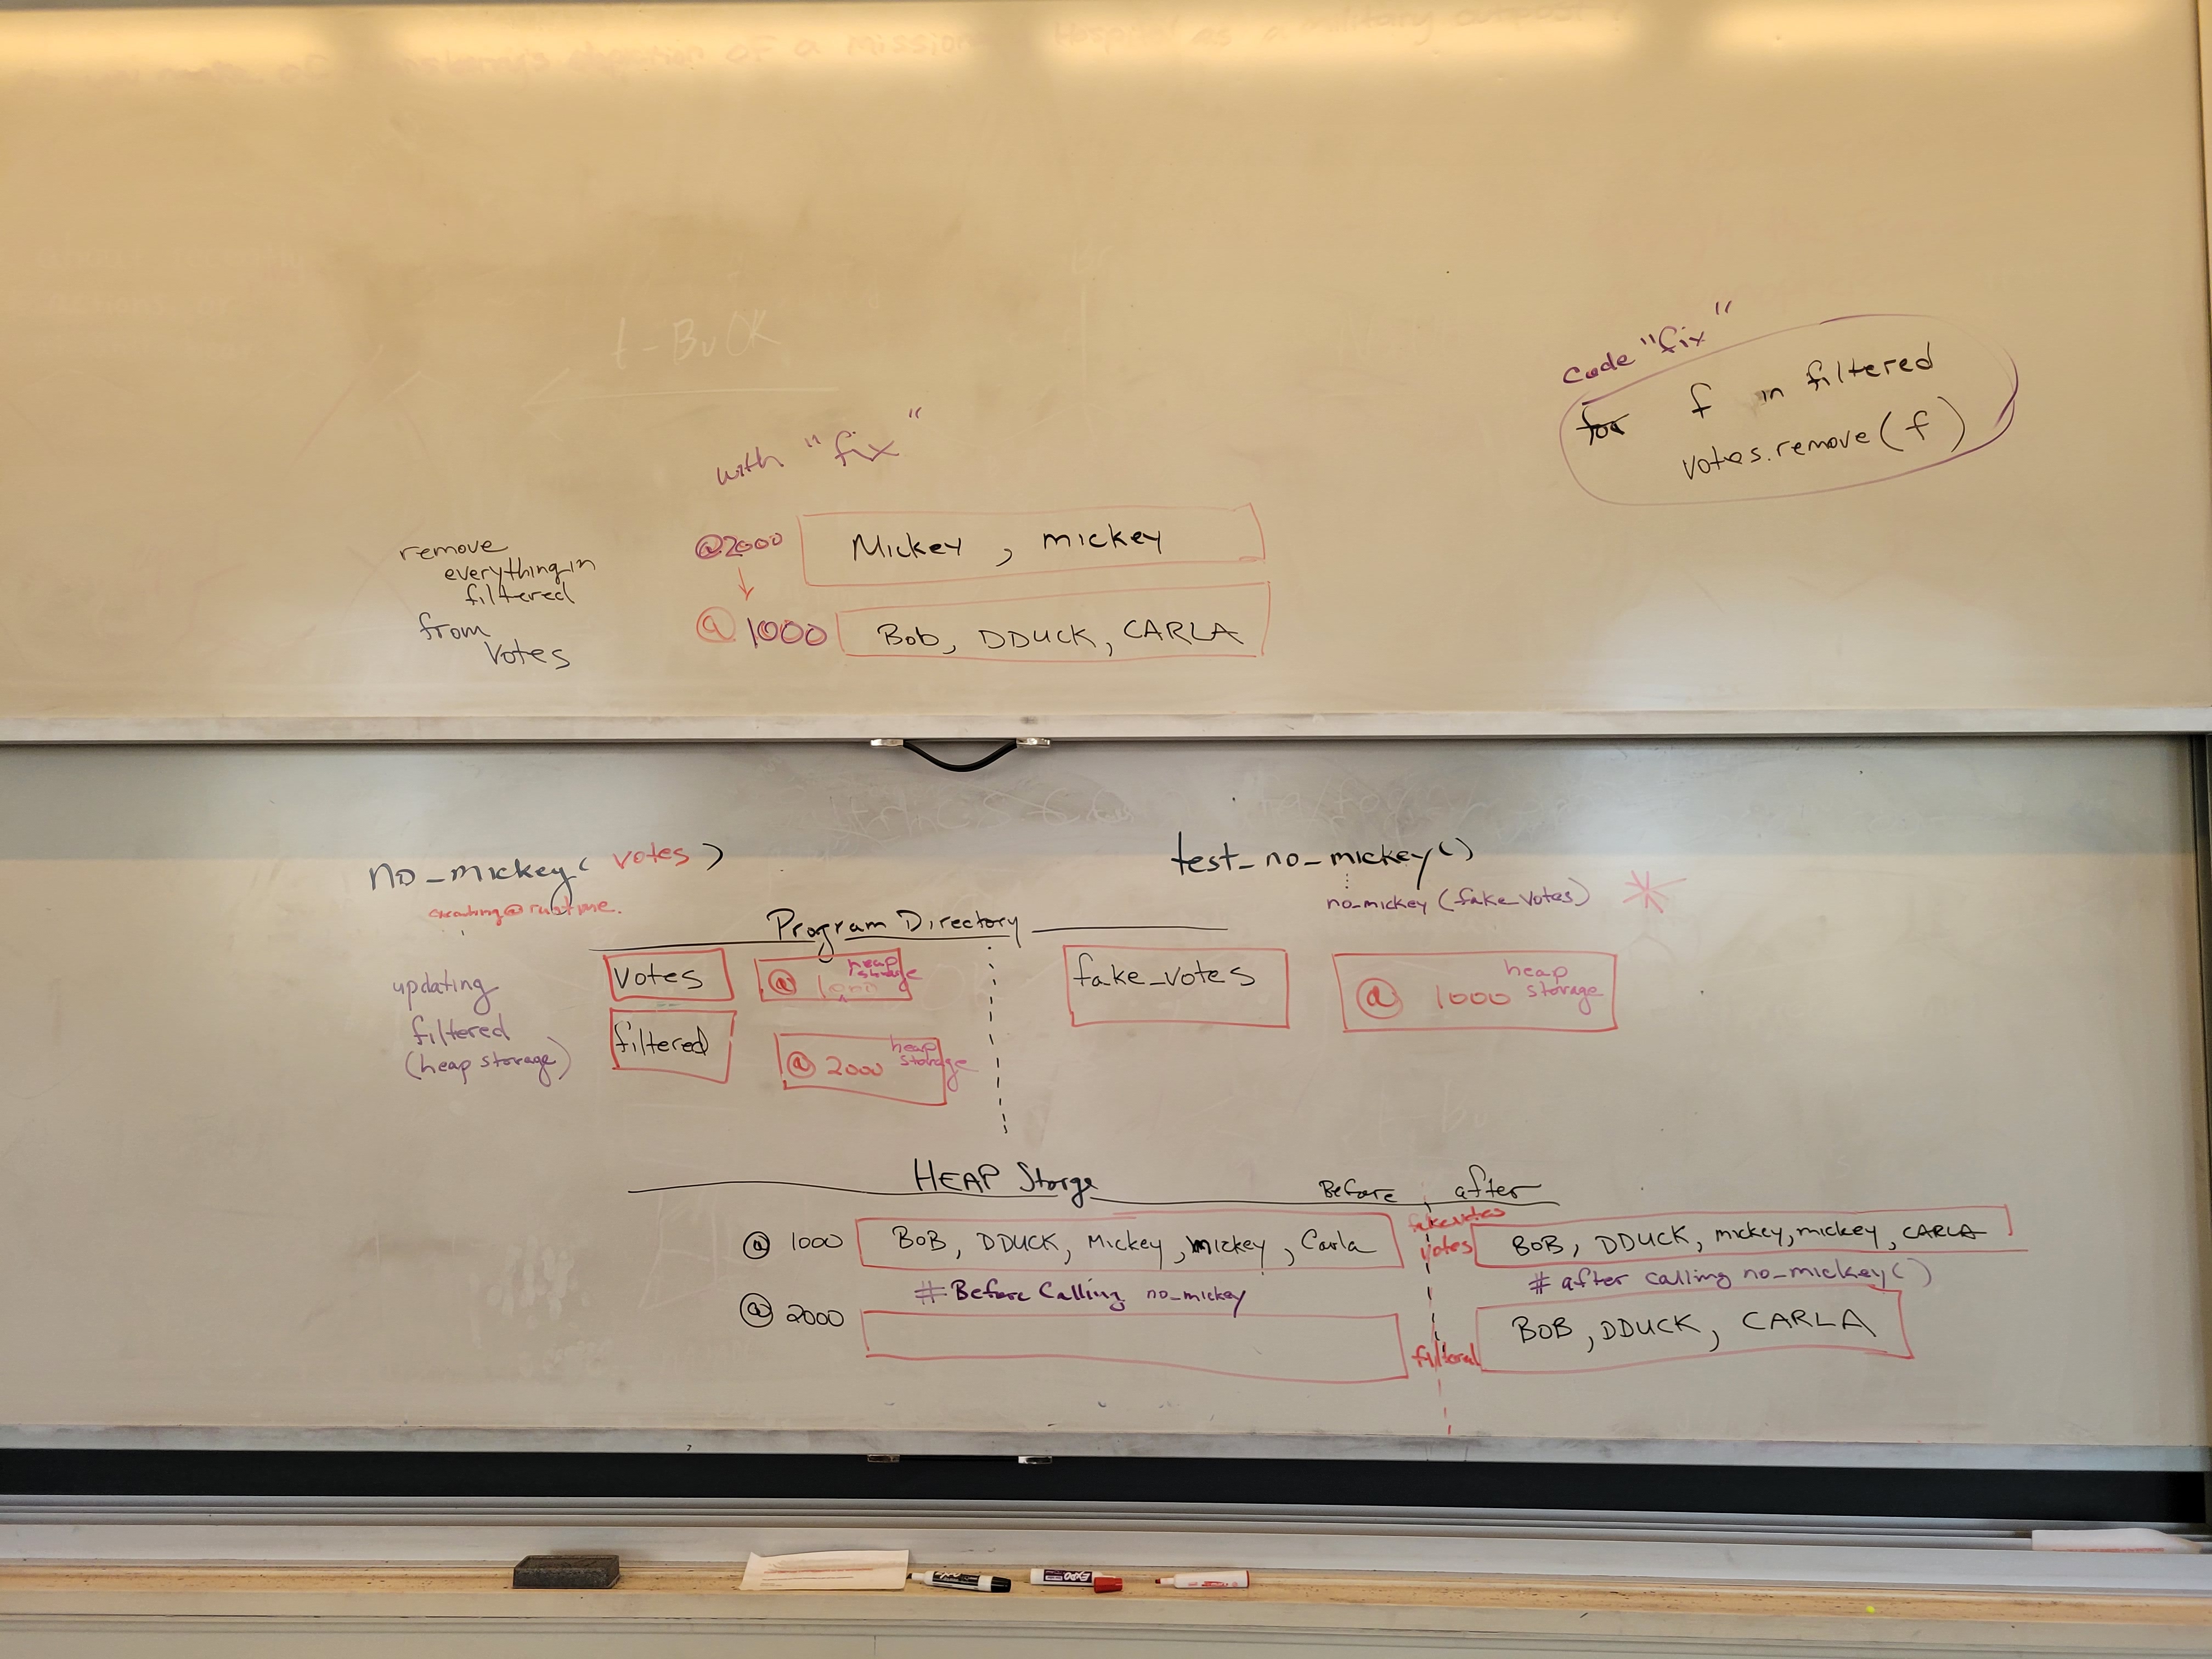 of a mission Hospital as a military outpost
t-BuOK
code "fix"
for f in filtered
votes.remove(f)
with "fix"
remove
everything in
filtered
from
votes
@2000 Mickey, mickey
@ 1000 Bob, DDUCK, CARLA
no_mickey( votes )
creating@runtime.
test_no_mickey()
no_mickey (fake_votes)
Program Directory
updating
filtered
(heap storage)
votes @ 1000 heap storage
filtered @ 2000 heap storage
fake_votes @ 1000 heap storage
HEAP Storge
Before after
@ 1000 BOB, DDUCK, Mickey, mickey, Carla
fakevotes
votes
BOB, DDUCK, mickey, mickey, CARLA
# Before Calling no_mickey
# after calling no_mickey()
@ 2000
filtered
BOB, DDUCK, CARLA
EXPO